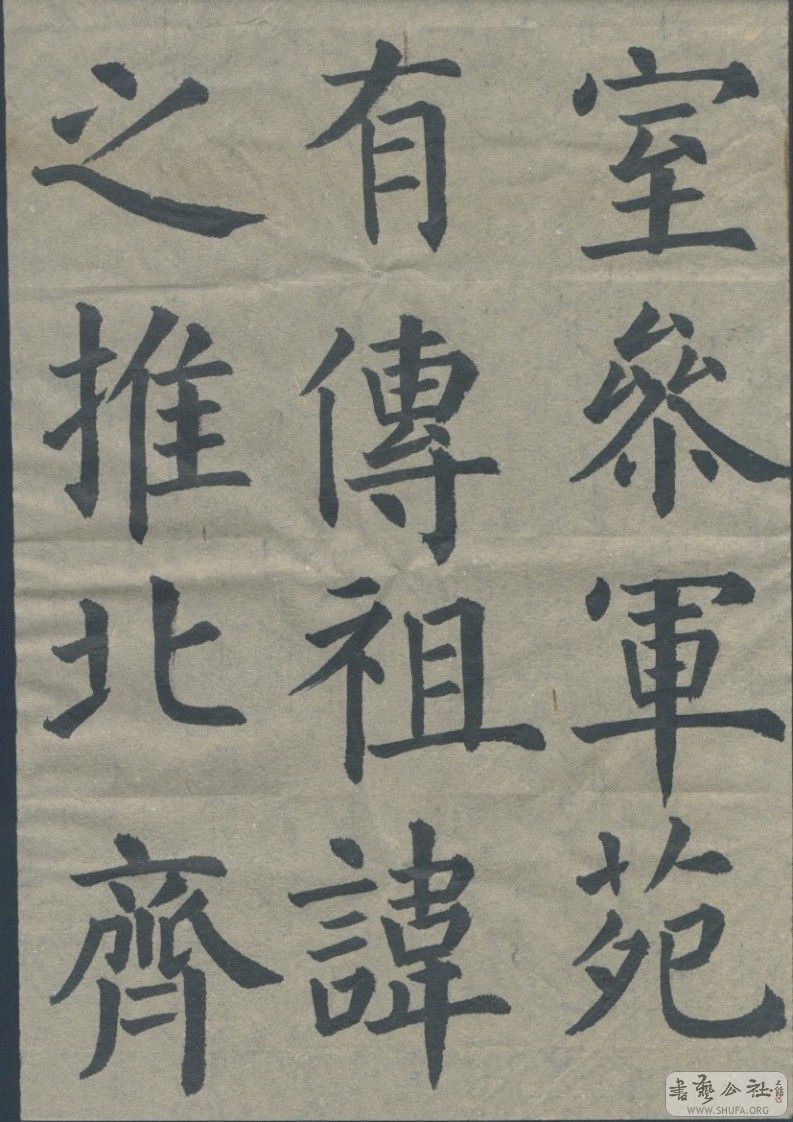 室參軍苑
有傳祖諱
之推北齊
書藝公社
WWW.SHUFA.ORG